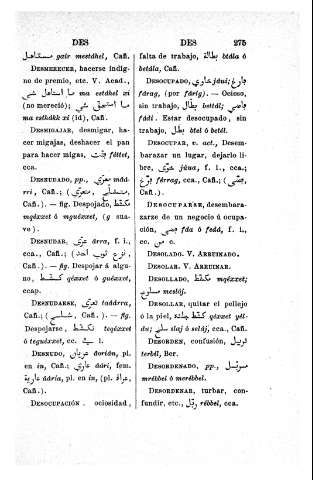 DES
DES
275
غير مستاهل gair mestáhel, Cañ.
DESMERECER, hacerse indigno
de premio, etc. V. Acad.,
ما استاهل شي ma estáhel xi
(no mereció); ما استحق شي
ma esthákk xi (id), Cañ.
DESMIGAJAR, desmigar, hacer
migajas, deshacer el pan
para hacer migas, فتت fáttet,
cca.
DESNUDADO, pp., معري
rri, Cañ.;
Cañ.). — fig. Despojado, مكشط
mqéxxet ó mguéxxet, (g suave).
DESNUDAR, عرى árra, f. i.,
cca., Cañ.;
Cañ.). — fig. Despojar á alguno,
كشط qéxxet ó guéxxet,
ccap.
DESNUDARSE, تعرى taâárra,
Cañ.; Cañ.). — fig.
Despojarse, تكشط teqéxxet
ó teguéxxet, cc. ل l.
DESNUDO, عريان âorián, pl.
en in, Cañ.; عاري âári, fem.
عارية âária, pl. en in, (pl. عراة,
Cañ.).
DESOCUPACIÓN, ociosidad,
falta de trabajo, بطالة btála ó
betála, Cañ.
DESOCUPADO,
fárag, (por fárig). — Ocioso,
sin trabajo, بطال bettál;
fádi. Estar desocupado, sin
trabajo, بطل btel ó betél.
DESOCUPAR, v. act., Desembarazar
un lugar, dejarlo libre,
f. i., cca.;
فرغ férrag, cca., Cañ.;
Cañ.).
DESOCUPARSE, desembarazarse
de un negocio ú ocupación,
fda ó fedá, f. i.,
cc. من e.
DESOLADO. V. ARRUINADO.
DESOLAR. V. ARRUINAR.
DESOLLADO, مكشط mqéxxet;
مسلوخ meslój.
DESOLLAR, quitar el pellejo
ó la piel, كشط qéxxet
سلخ slaj ó seláj, cca., Cañ.
DESORDEN, confusión,
terbél, Ber.
DESORDENADO, pp.,
mrébbel ó merébbel.
DESORDENAR, turbar, confundir,
etc., ربل rébbel, cca.